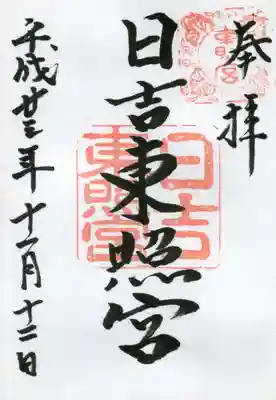 奉拝
日吉東照宮
日吉東照宮
平成廿三年十一月十二日